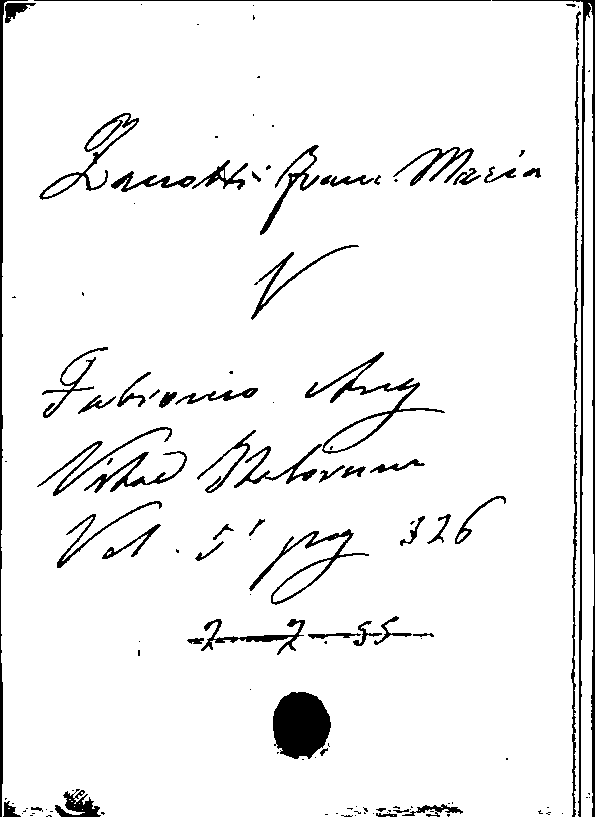 Zanotti Franc. Maria
V
Fabronio Ang
Vitae Italorum
Vol. 5' pag 326
7 7 55